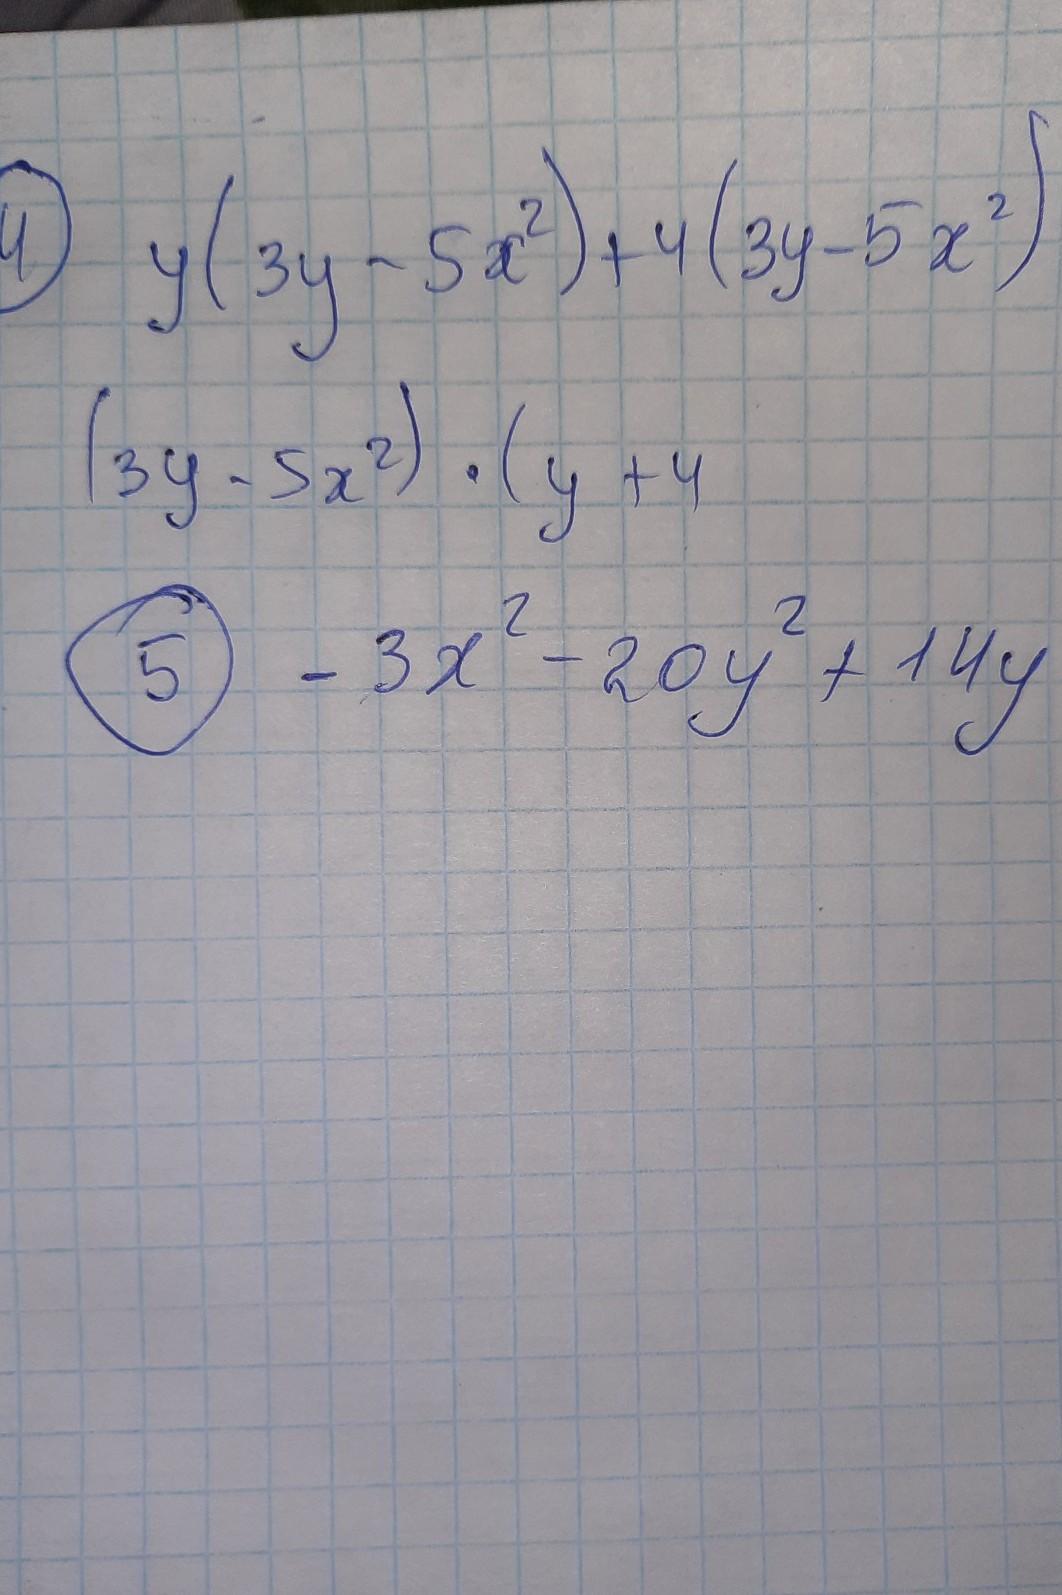 4 y(3y-5x²)+4(3y-5x²)
(3y-5x²)·(y+4
5 -3x²-20y²+14y